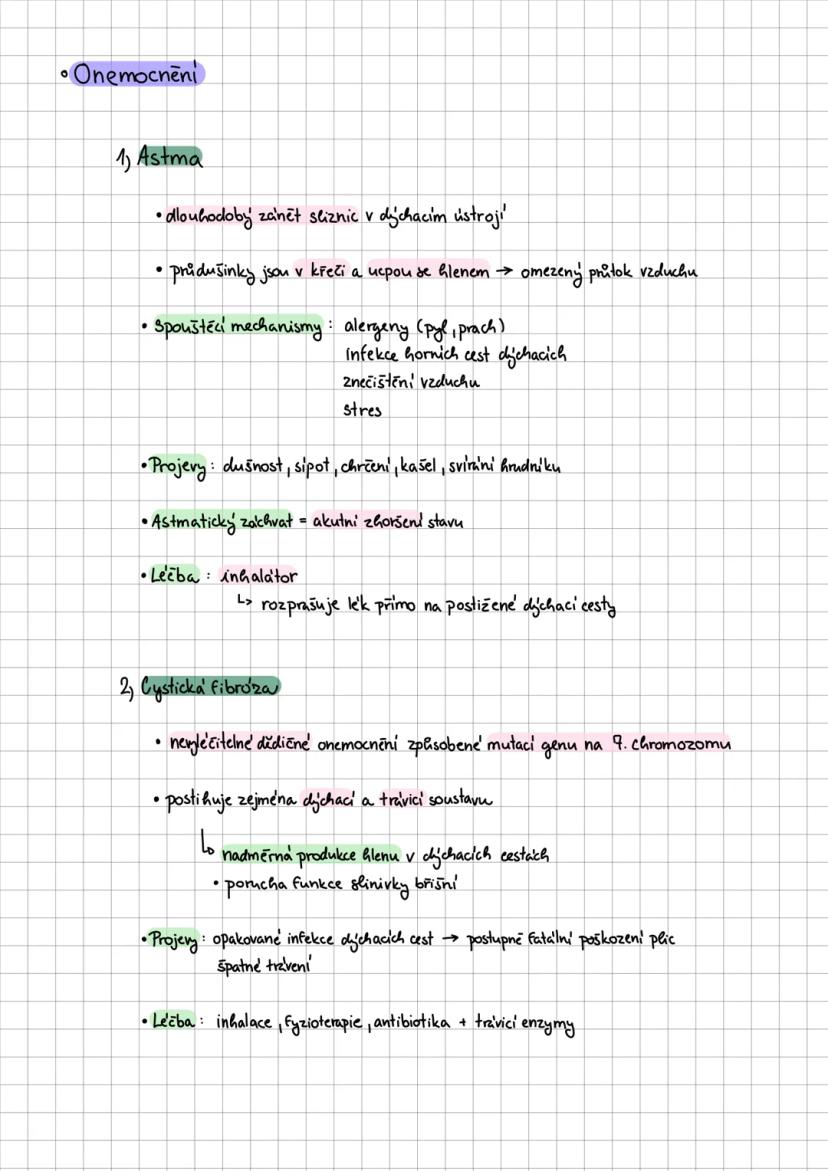 • Onemocnění
1) Astma
• dlouhodobý zánět sliznic v dýchacím ústrojí
• průdušinky jsou v křeči a ucpou se hlenem → omezený průtok vzduchu
• Spouštěcí mechanismy : alergeny (pyl, prach)
infekce horních cest dýchacích
znečištění vzduchu
stres
• Projevy : dušnost, sípot, chrčení, kašel, svírání hrudníku
• Astmatický záchvat = akutní zhoršení stavu
• Léčba : inhalátor
↳ rozprašuje lék přímo na postižené dýchací cesty
2) Cystická fibróza
• nevyléčitelné dědičné onemocnění způsobené mutací genu na 7. chromozomu
• postihuje zejména dýchací a trávicí soustavu
↳ nadměrná produkce hlenu v dýchacích cestách
• porucha funkce slinivky břišní
• Projevy : opakované infekce dýchacích cest → postupné fatální poškození plic
špatné trávení
• Léčba : inhalace, fyzioterapie, antibiotika + trávicí enzymy